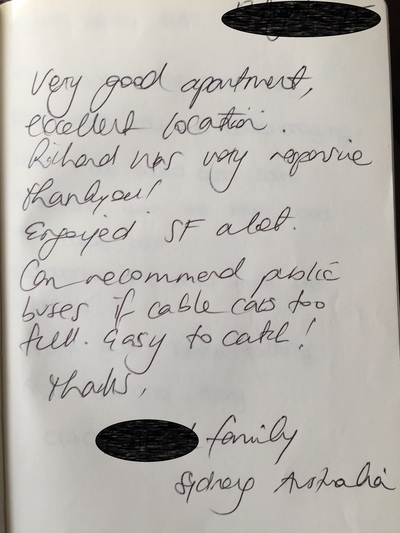 Very good apartment,
excellent location.
Richard was very responsive
thankyou!
Enjoyed SF alot.
Can recommend public
buses if cable cars too
full. Easy to catch!
Thanks,
family
Sydney Australia